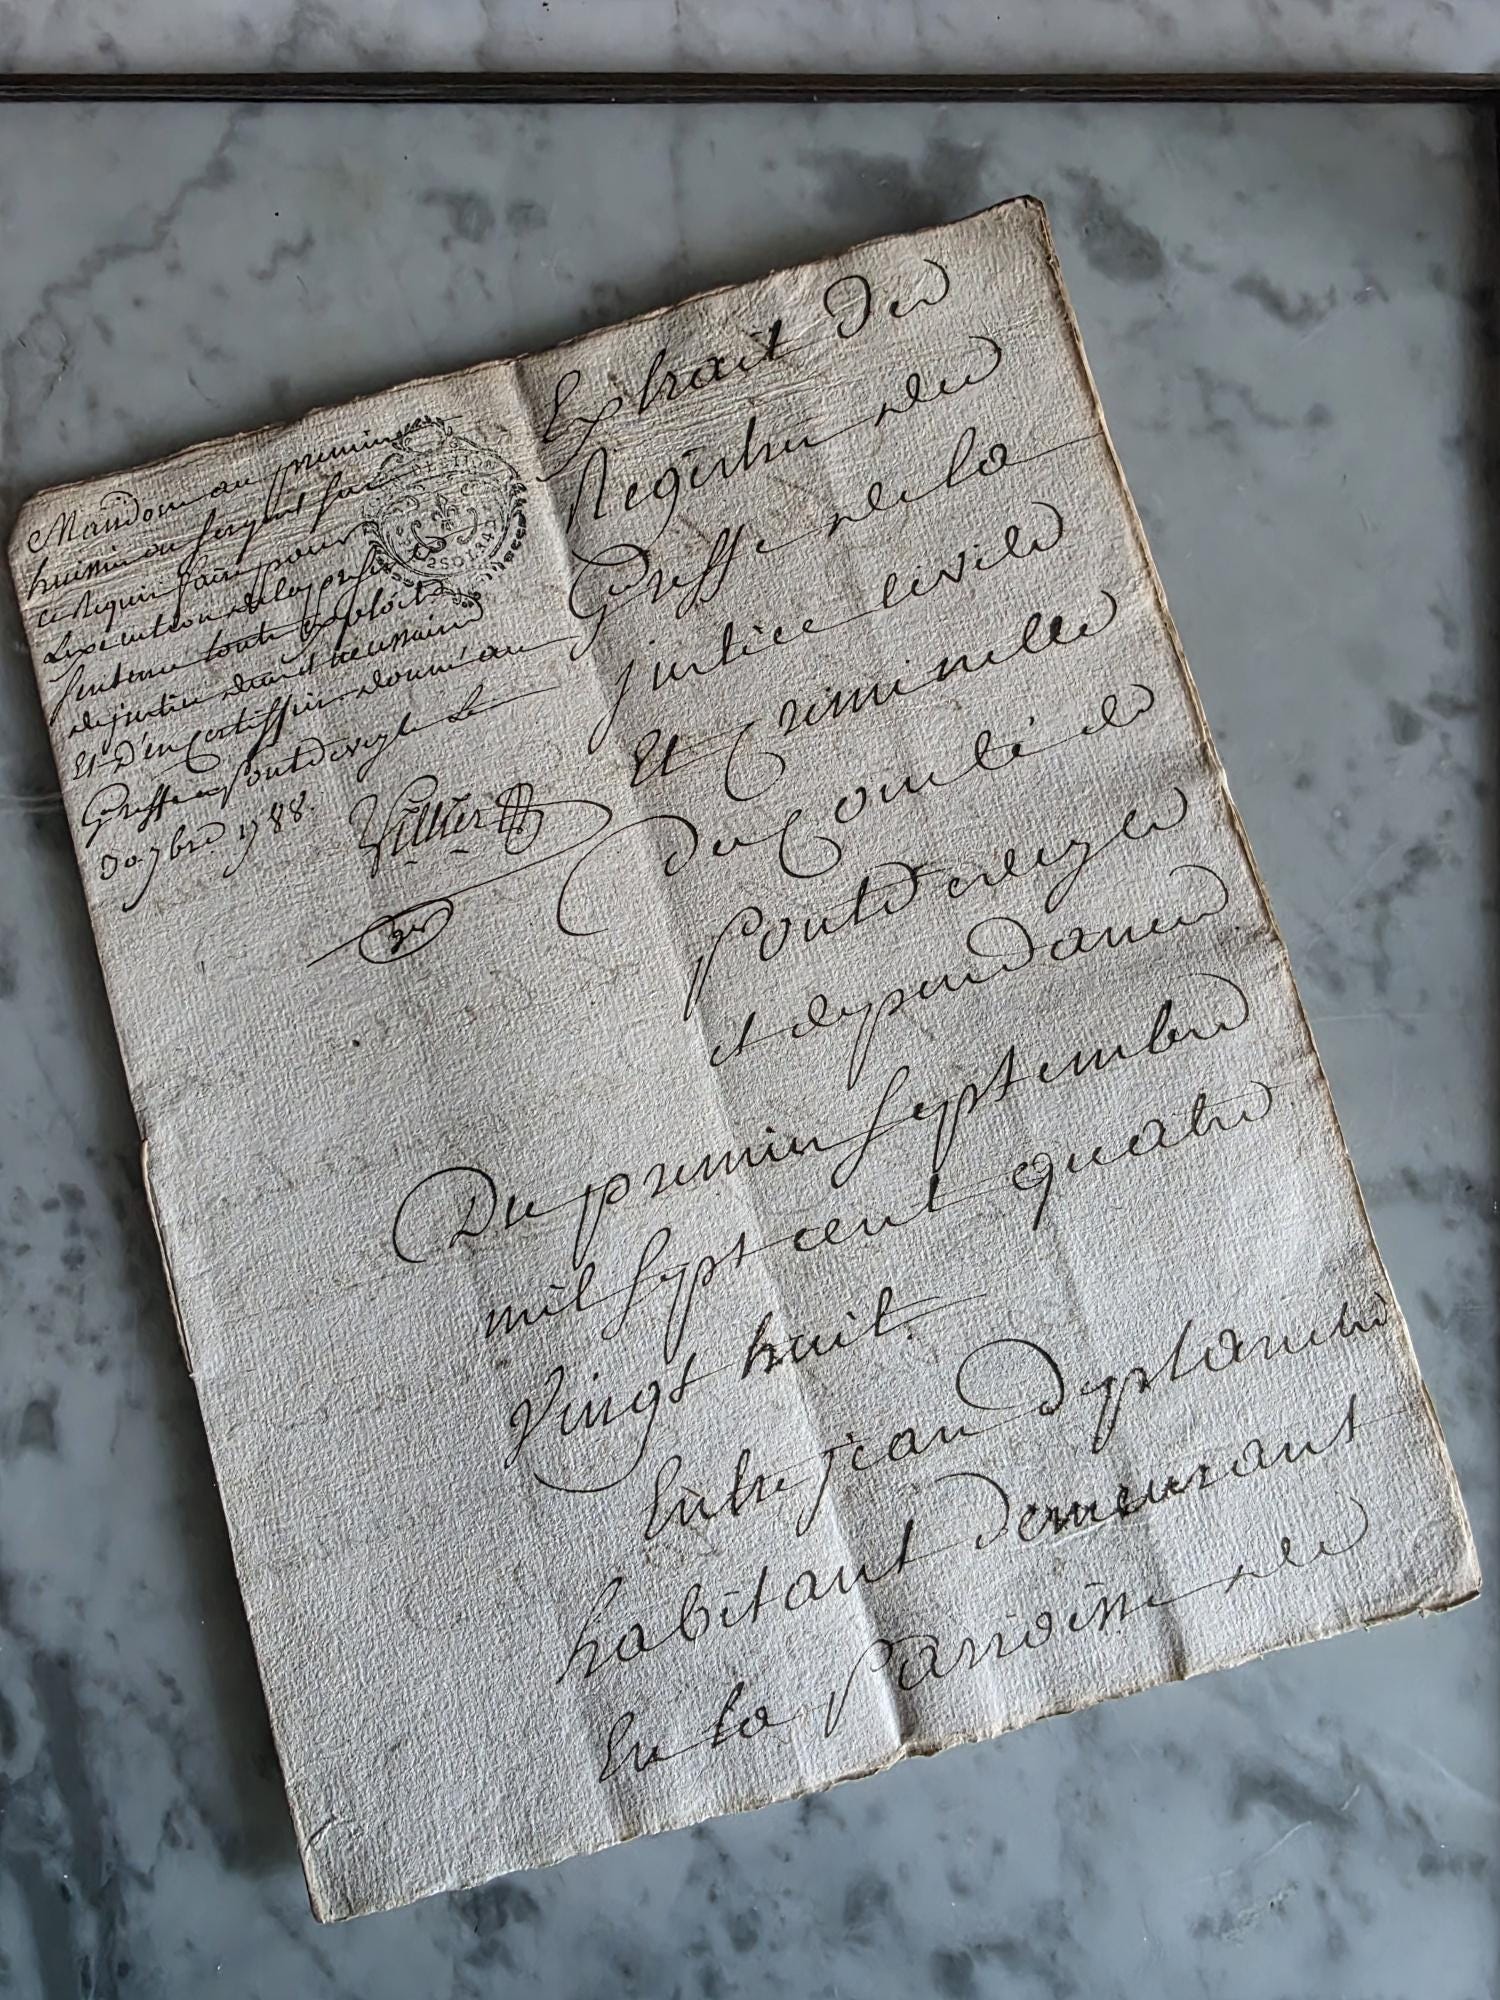 Mandons au premier
huissier ou sergent sur
ce requis faire pour
Lexecution de la pnte
sentence touts exploits
de justice deus et necessaires
Et D'en Certiffier donné au
Greffe a pontdeveyle Le
30 7bre 1788.
Extrait Des
Registres des
Greffe de la
justice Civile
Et Criminelle
Du Comté de
pontDeveyle
et dependances
Du premier septembre
mil sept cent quatre
Vingt huit.
Entre jean desplanches
habitant demeurant
En la Parroisse de